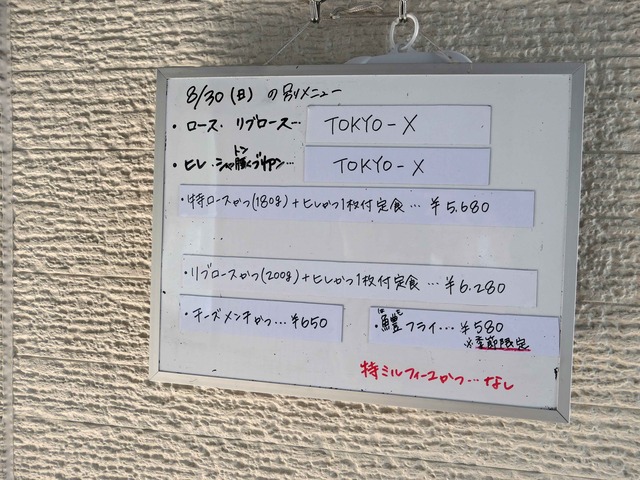 8/30(日)の別メニュー
・ロース・リブロース… TOKYO-X
トン
・ヒレ・シャ豚ブリアン… TOKYO-X
・特ロースかつ(180g)+ヒレかつ1枚付定食…¥5.680
・リブロースかつ(200g)+ヒレかつ1枚付定食…¥6.280
・チーズメンチかつ…¥650
はも
・鱧フライ…¥580
※季節限定
特ミルフィーユかつ…なし